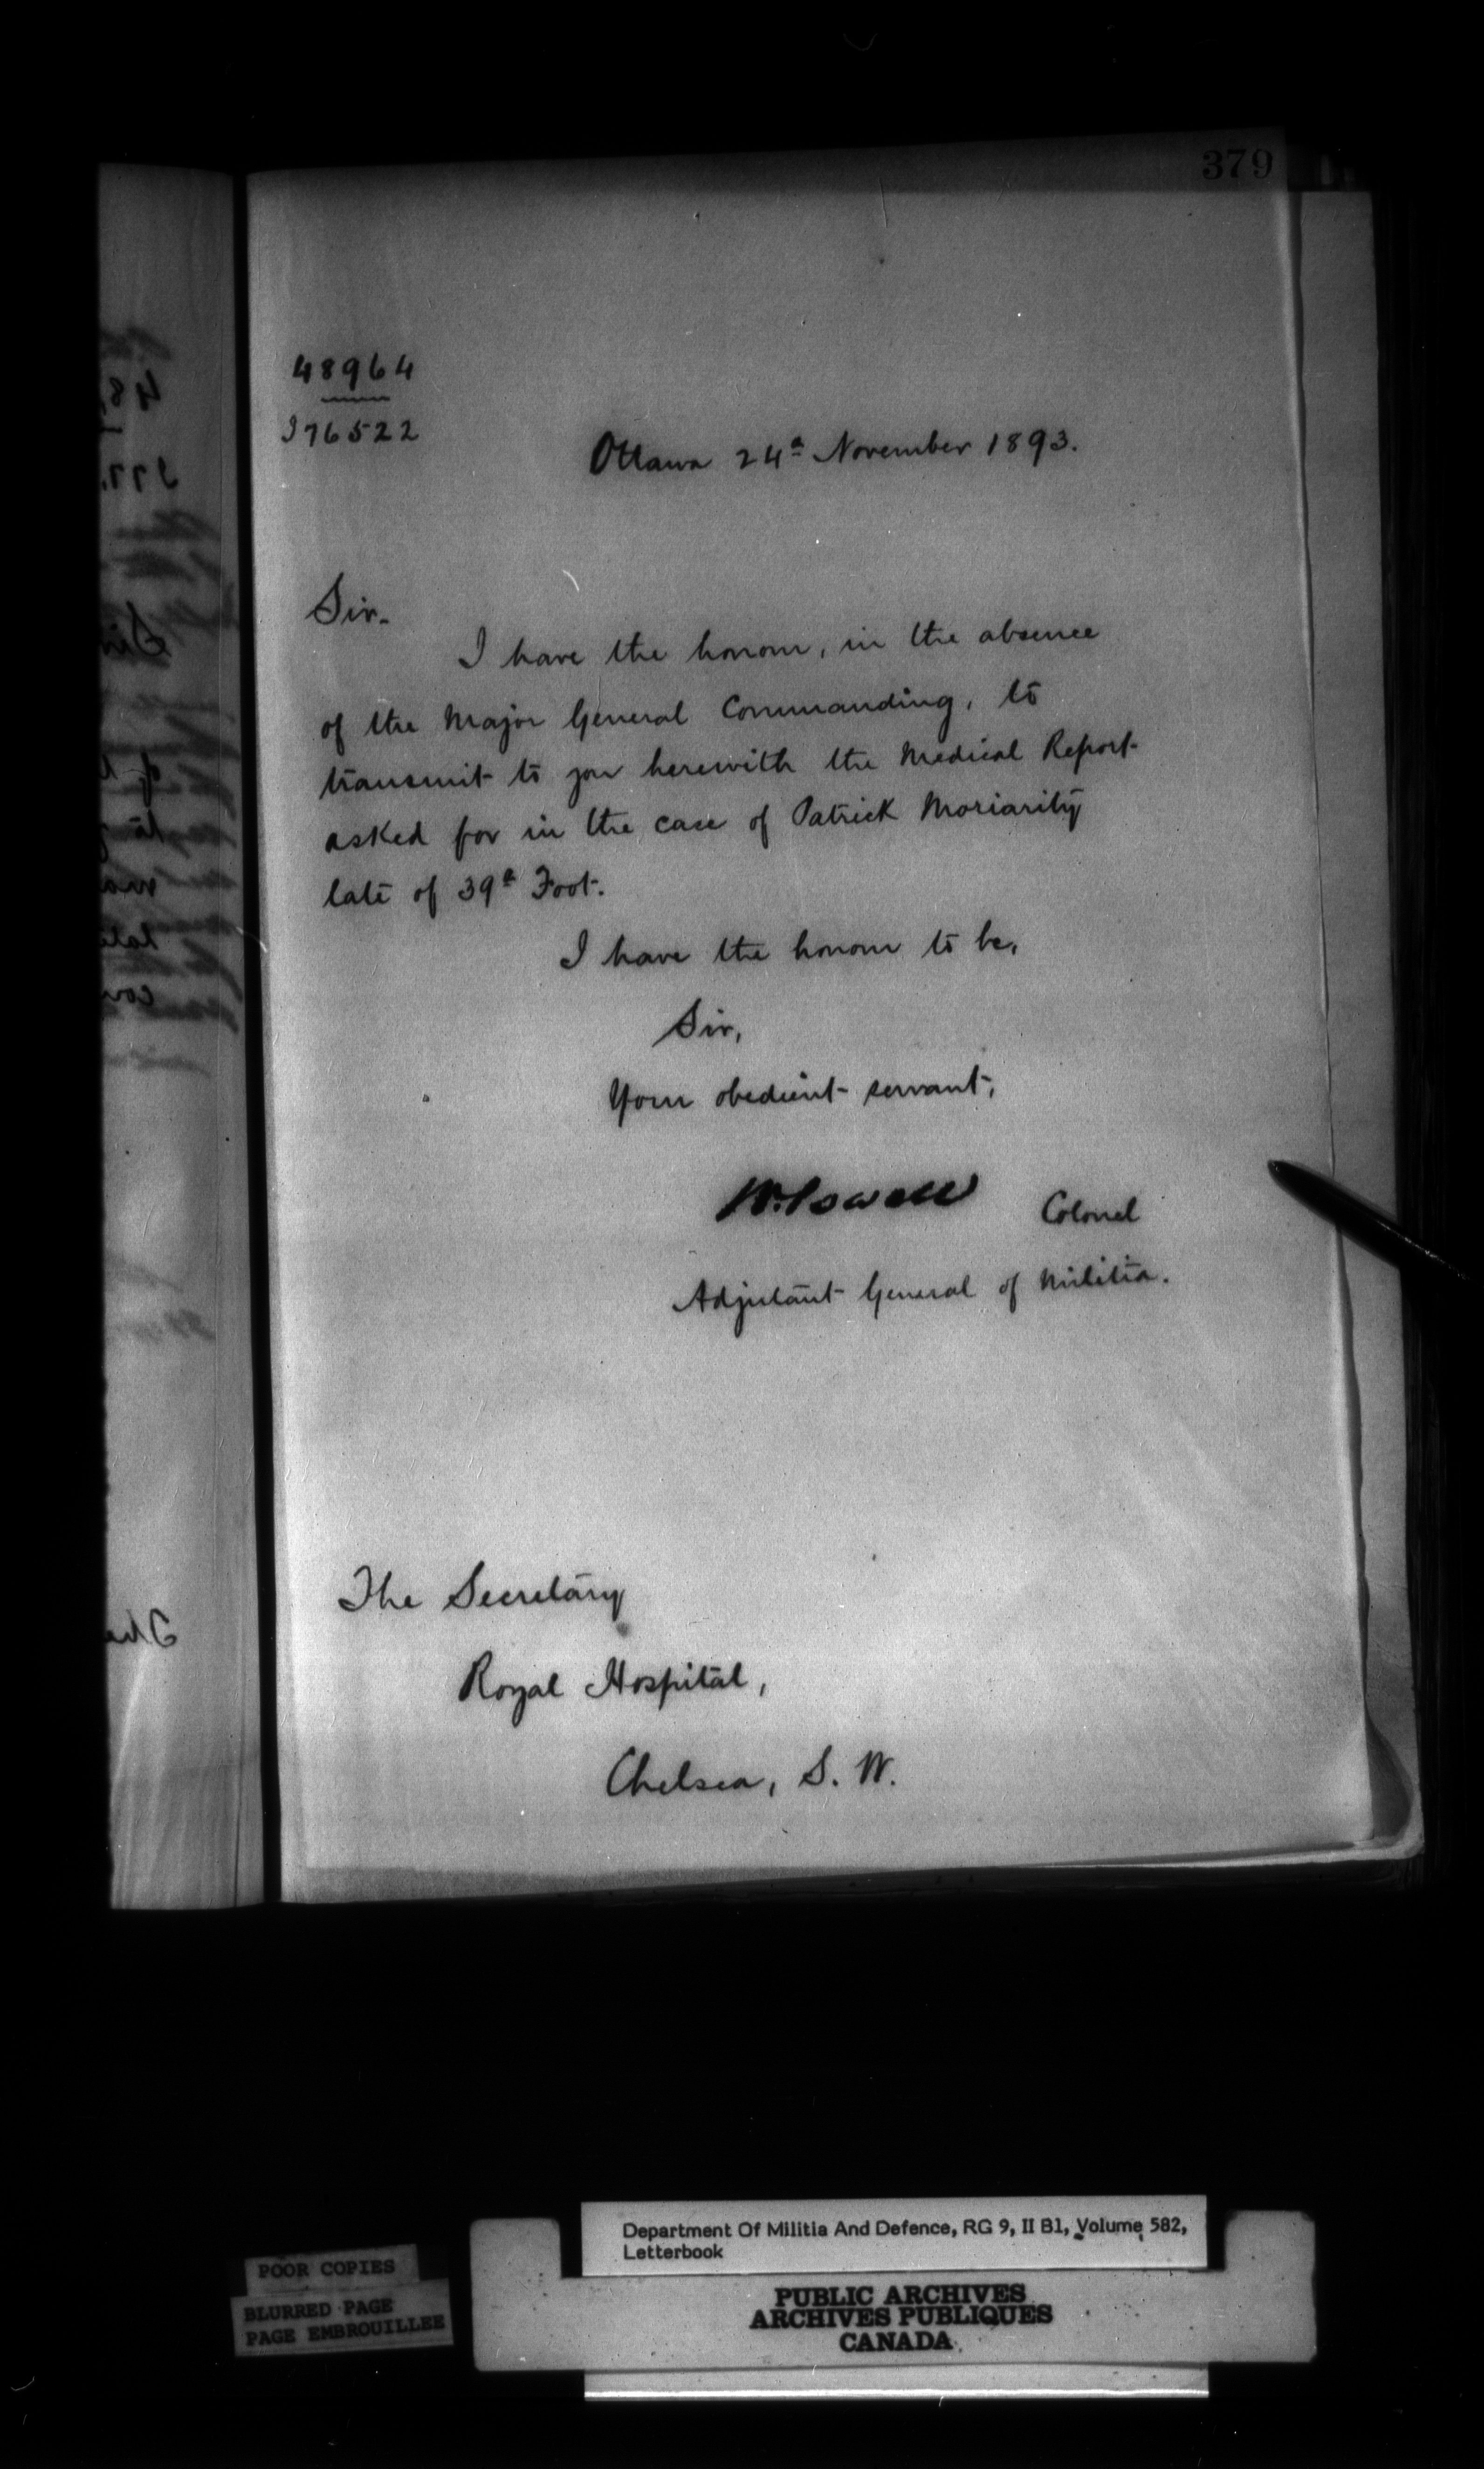 379
48964
I76522
Ottawa 24th November 1893.
Sir.
I have the honour, in the absence
of the Major General Commanding, to
transmit to you herewith the Medical Report
asked for in the case of Patrick Moriarity
late of 39th Foot.
I have the honour to be,
Sir,
Your obedient servant,
W. Powell Colonel
Adjutant General of Militia.
The Secretary
Royal Hospital,
Chelsea, S. W.
Department Of Militia And Defence, RG 9, II B1, Volume 582,
Letterbook
POOR COPIES
BLURRED PAGE
PAGE EMBROUILLEE
PUBLIC ARCHIVES
ARCHIVES PUBLIQUES
CANADA